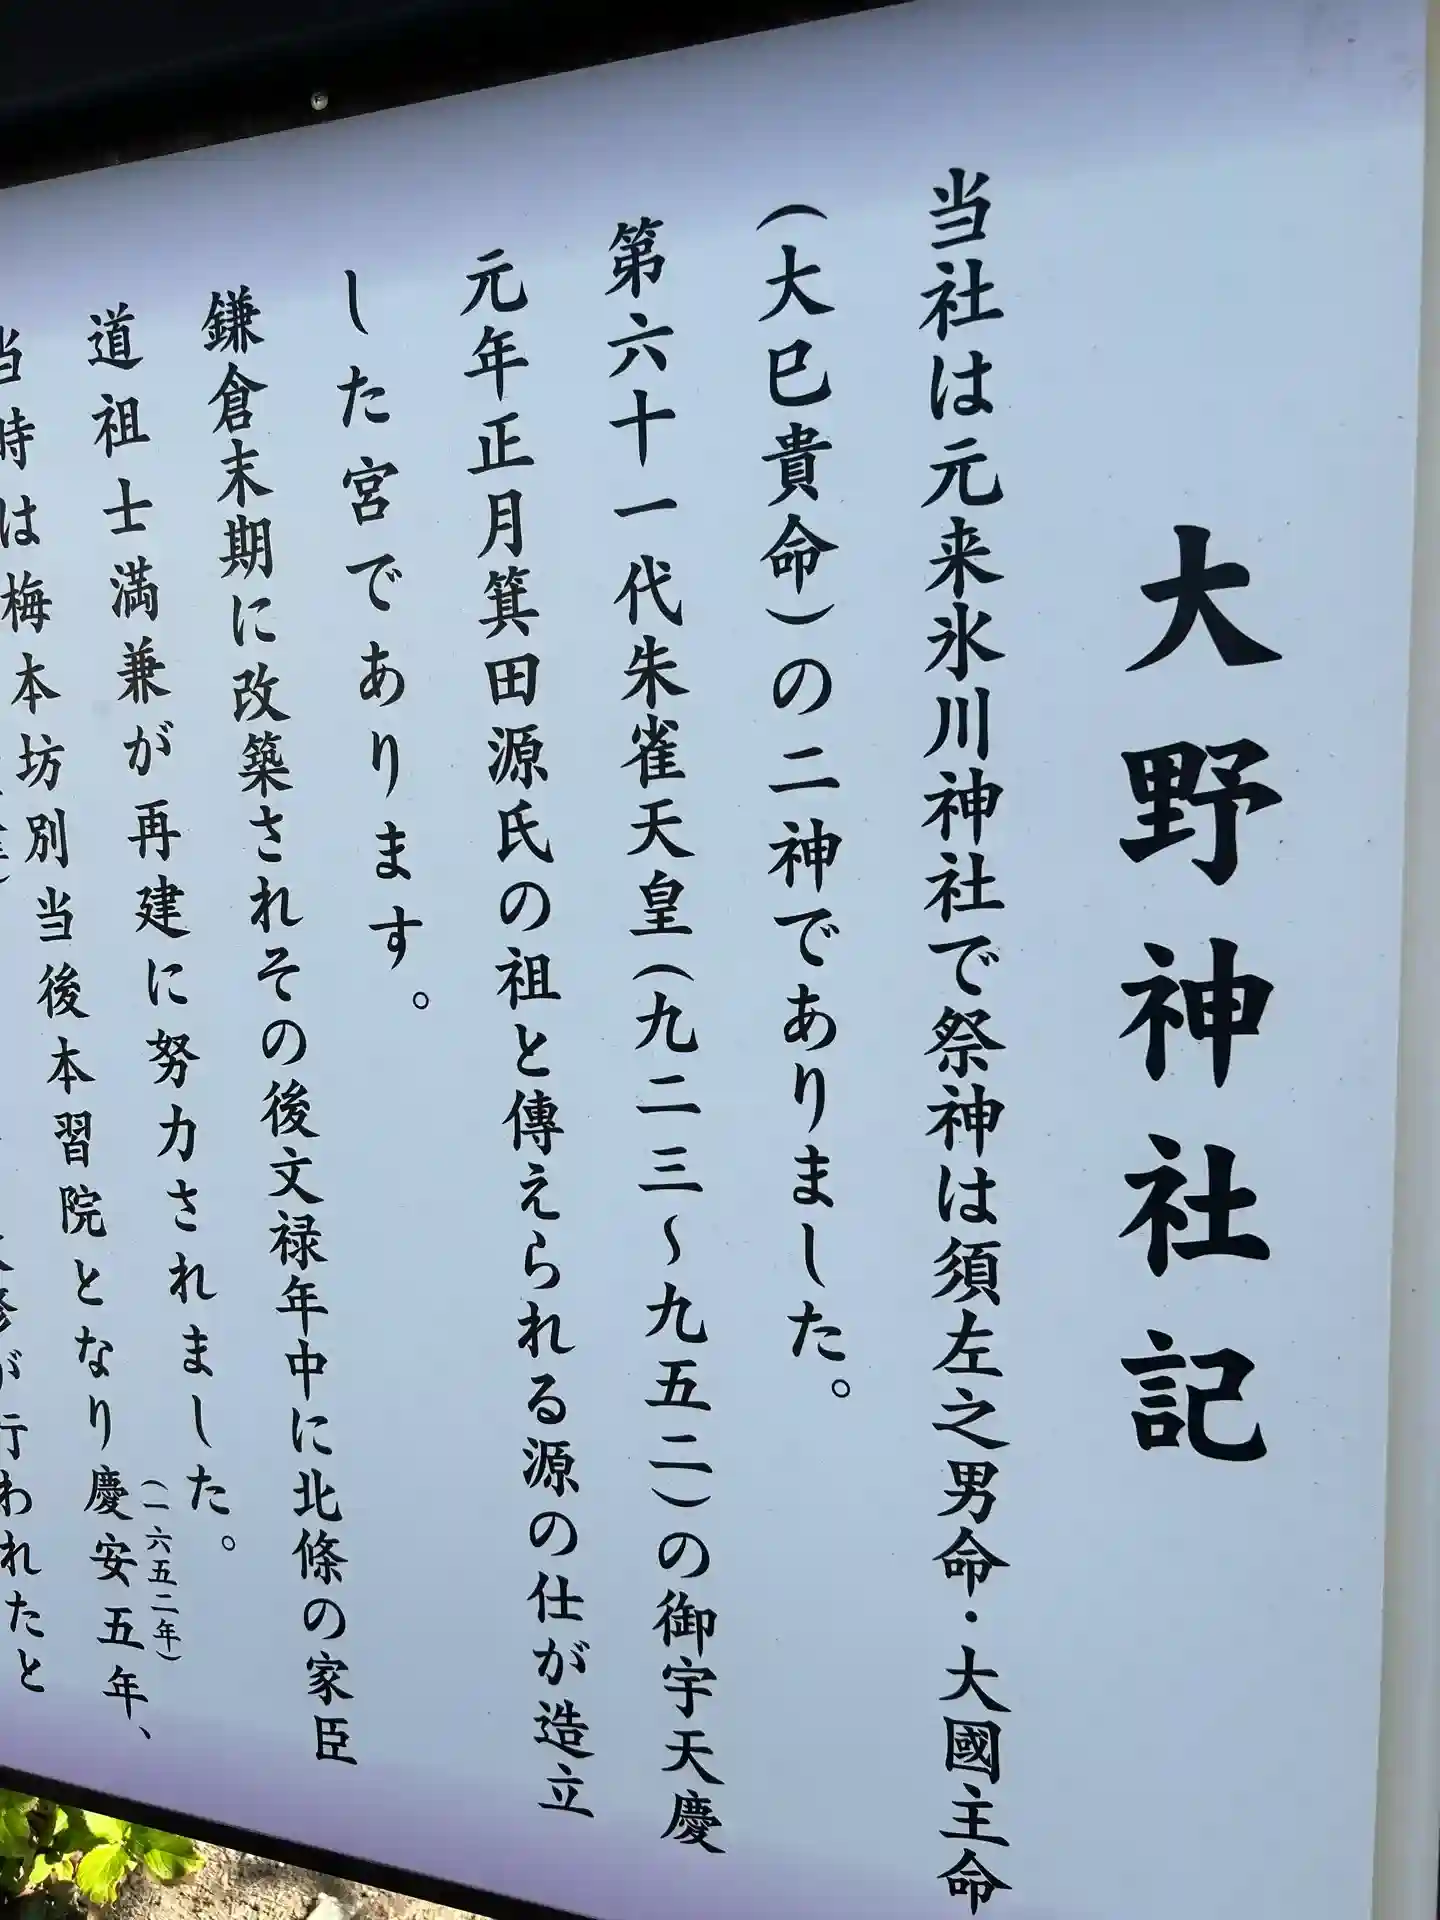 大野神社記
当社は元来氷川神社で祭神は須左之男命・大國主命
（大巳貴命）の二神でありました。
第六十一代朱雀天皇（九二三～九五二）の御宇天慶
元年正月箕田源氏の祖と傳えられる源の仕が造立
した宮であります。
鎌倉末期に改築されその後文禄年中に北條の家臣
道祖士満兼が再建に努力されました。
（一六五二年）
当時は梅本坊別当後本習院となり慶安五年、
が行われたと